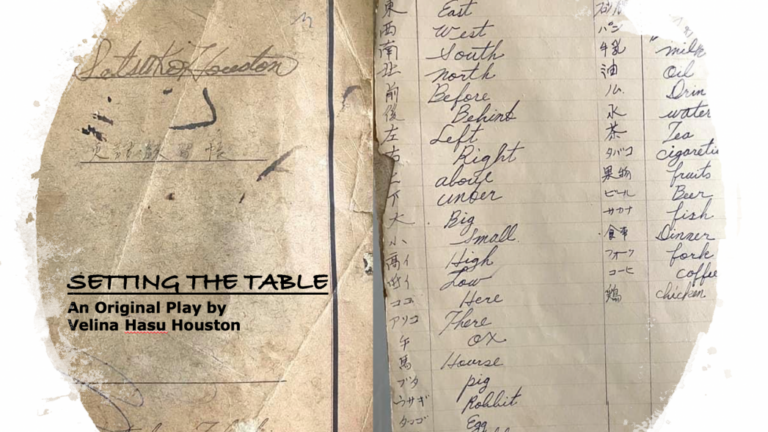 Setsuko Houston
SETTING THE TABLE
An Original Play by
Velina Hasu Houston
東 East
西 West
南 South
北 north
前 Before
後 Behind
左 Left
右 Right
上 above
下 under
大 Big
小 Small
高イ High
Low
ココ Here
アソコ There
牛 ox
馬 Hourse
ブタ pig
ウサギ Robbit
タマゴ Egg
パン
牛乳 "milk
油 Oil
Drin
水 water
茶 Tea
タバコ cigarette
果物 fruits
ビール Beer
サカナ fish
食事 Dinner
フォーク fork
コーヒ coffee
鶏 chicken